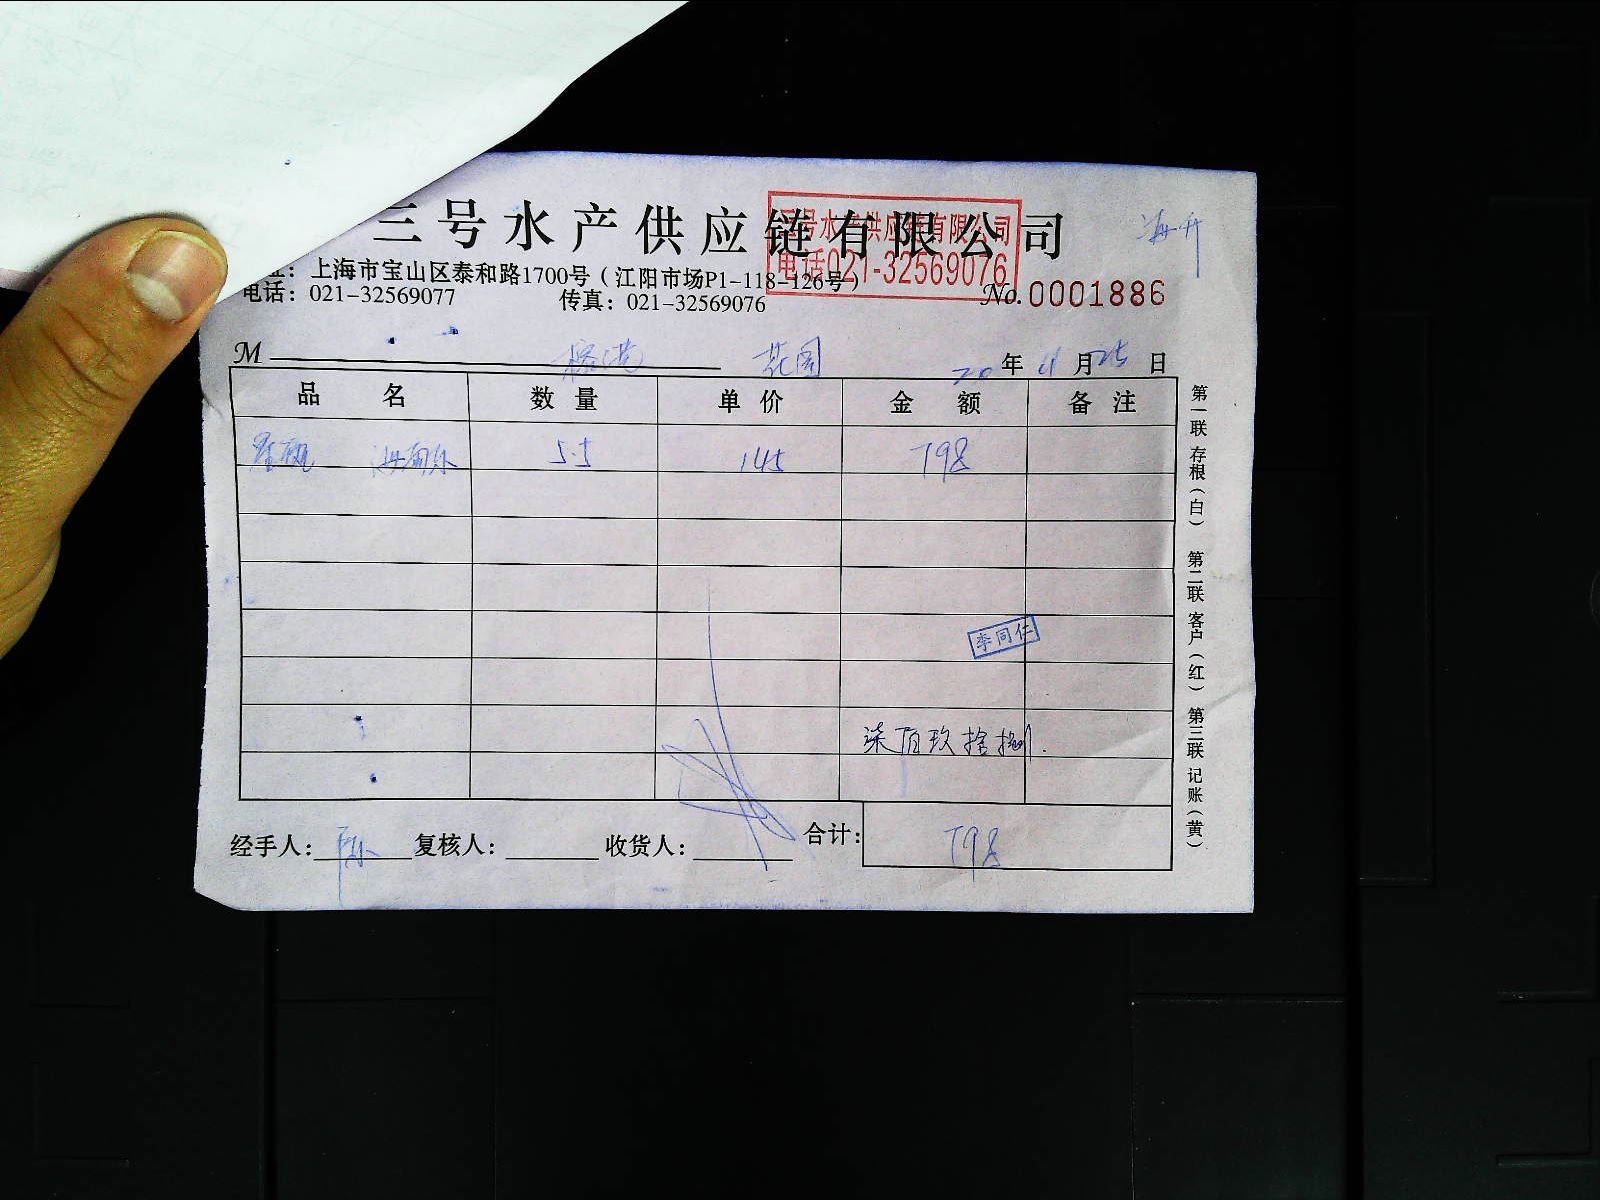 三号水产供应链有限公司
三号水产供应链有限公司
电话021-32569076
海升
址：上海市宝山区泰和路1700号（江阳市场P1-118-126号）
电话：021-32569077 传真：021-32569076
No.0001886
M 榕港 花园 20年11月25日
品名 数量 单价 金额 备注
5.5 145 798
李同仁
柒佰玖拾捌.
经手人：陈 复核人： 收货人： 合计：798
第一联 存根（白） 第二联 客户（红） 第三联 记账（黄）